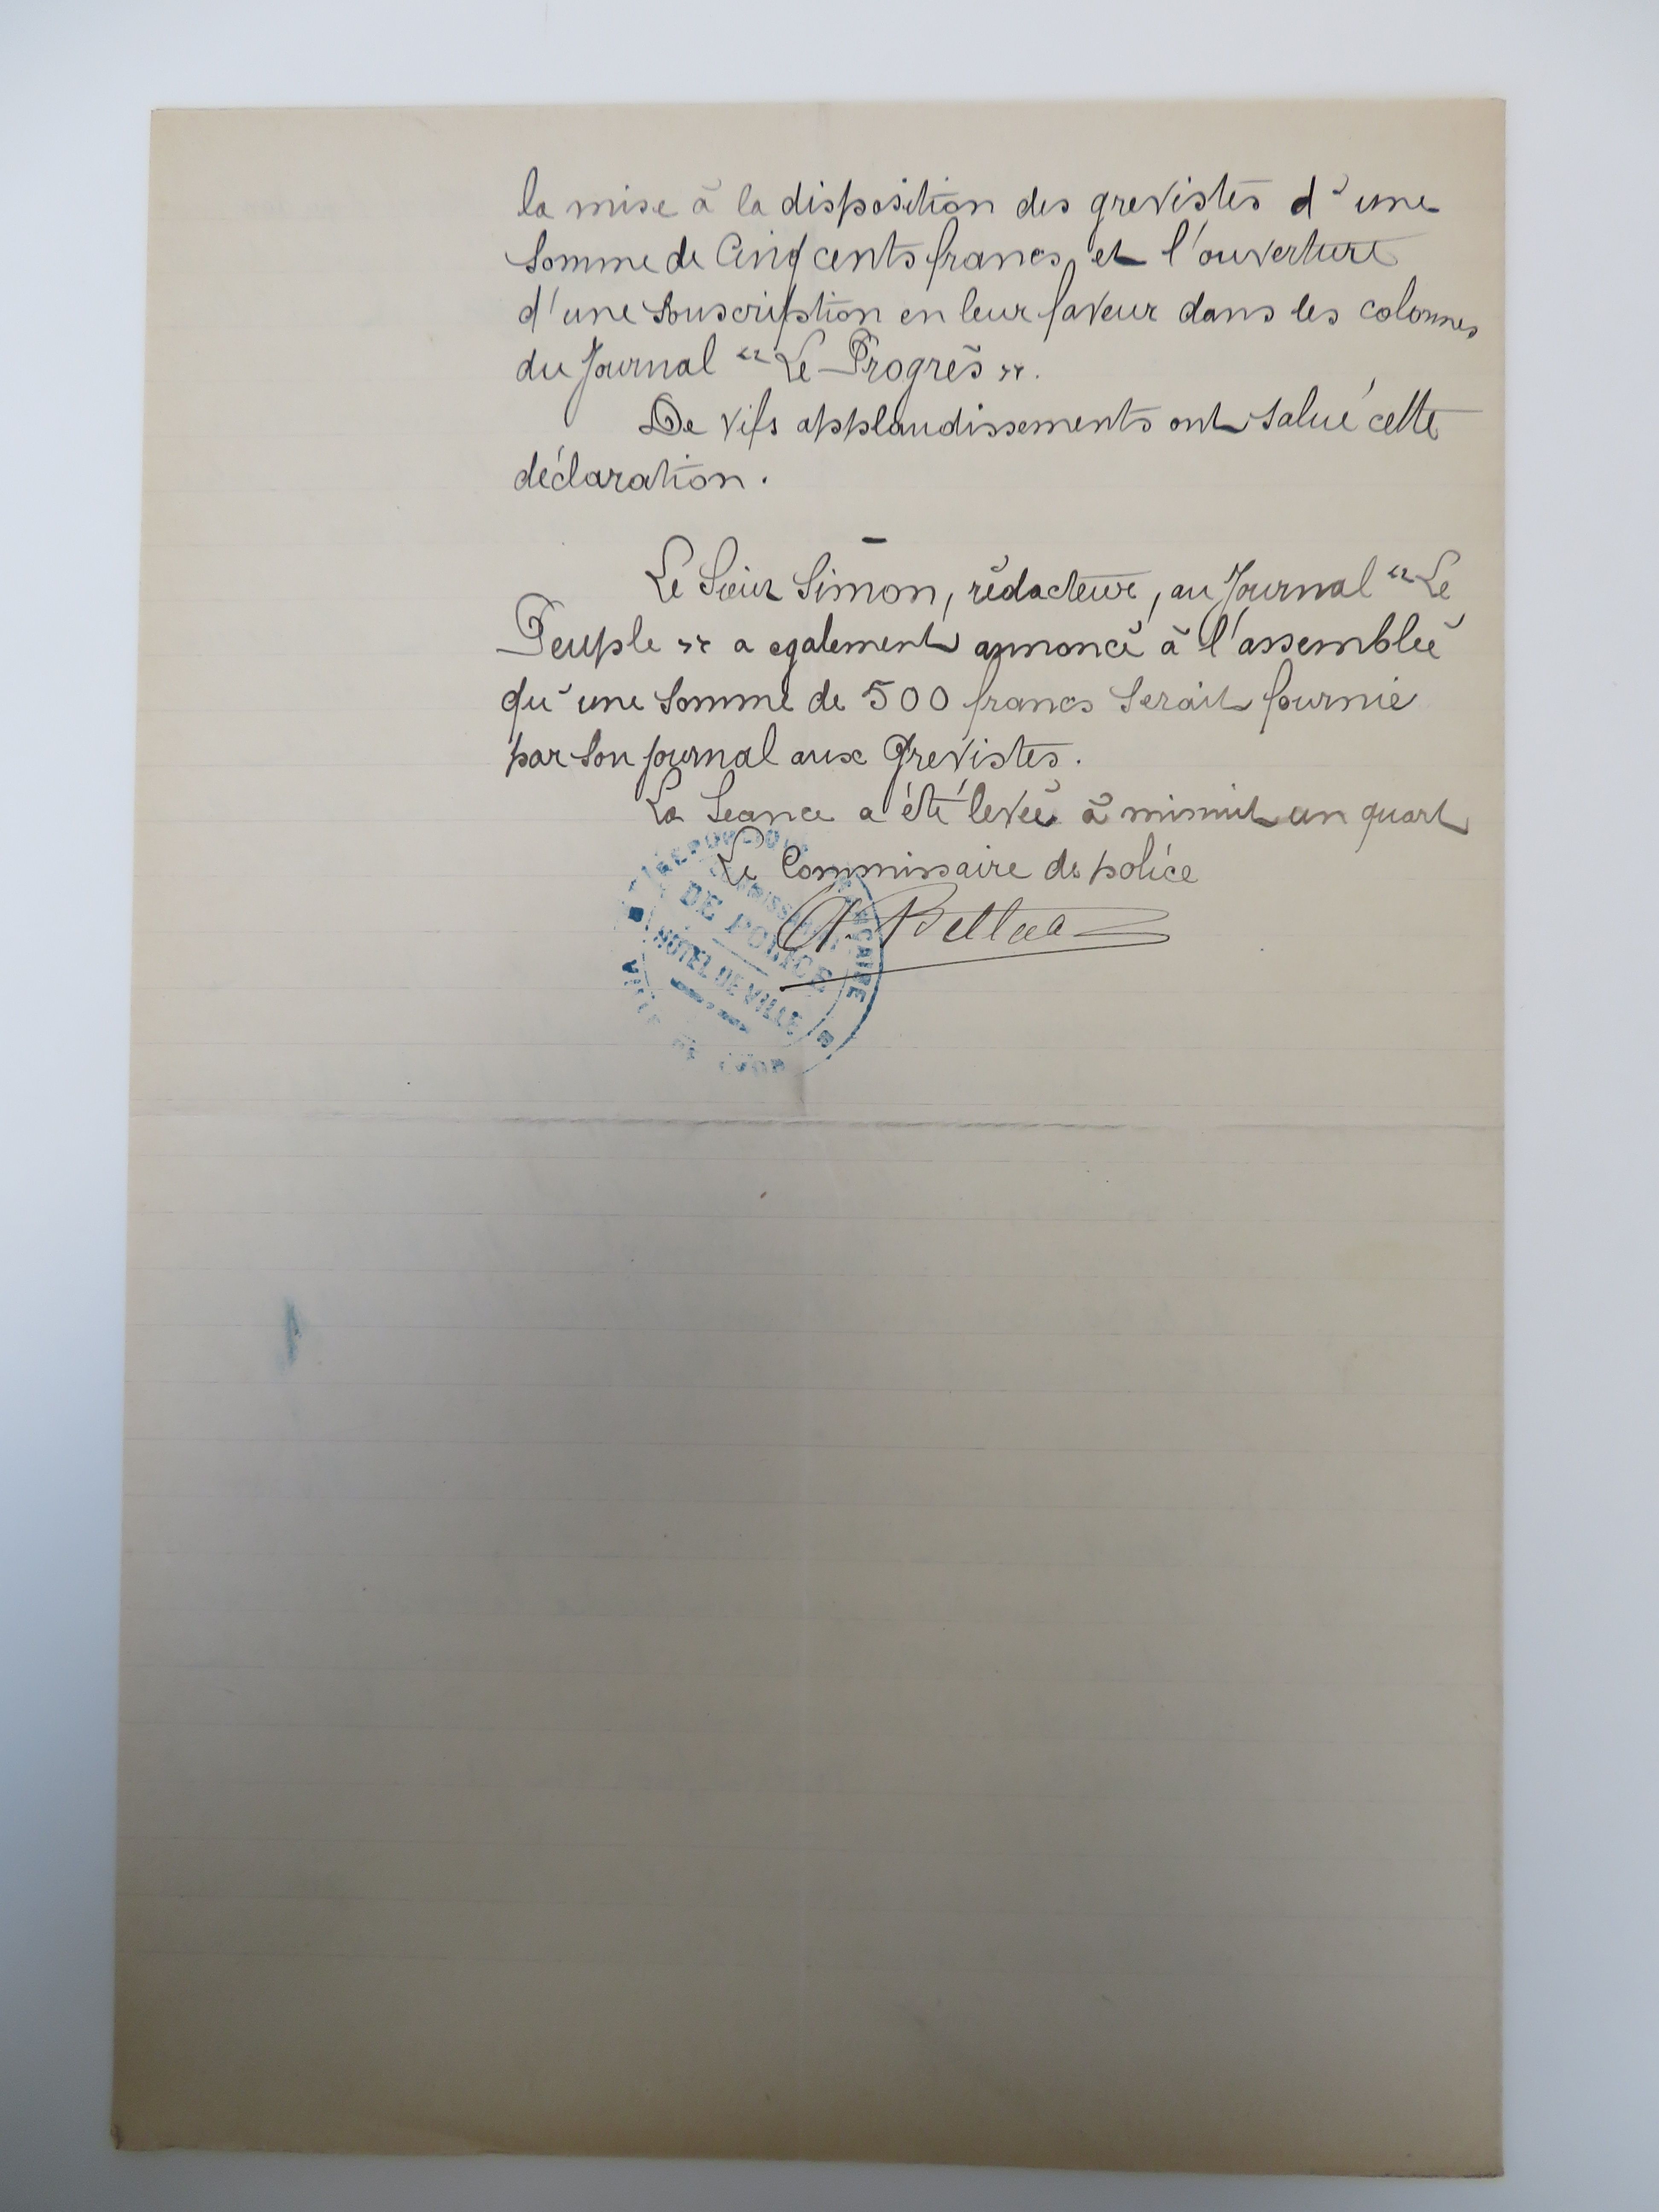 la mise à la disposition des grevistes d'une
somme de Cinq cents francs, et l'ouverture
d'une souscription en leur faveur dans les colonnes
du Journal "Le Progrès".
De vifs applaudissements ont salué cette
déclaration.
Le Sieur Simon, rédacteur, au Journal "Le
Peuple" a egalement annoncé à l'assemblée
qu'une somme de 500 francs serait fournie
par son journal aux Grevistes.
La Séance a été levée à minuit un quart
Le Commissaire de police
RÉPUBLIQUE FRANÇAISE
COMMISSARIAT
DE POLICE
HOTEL DE VILLE
VILLE DE LYON